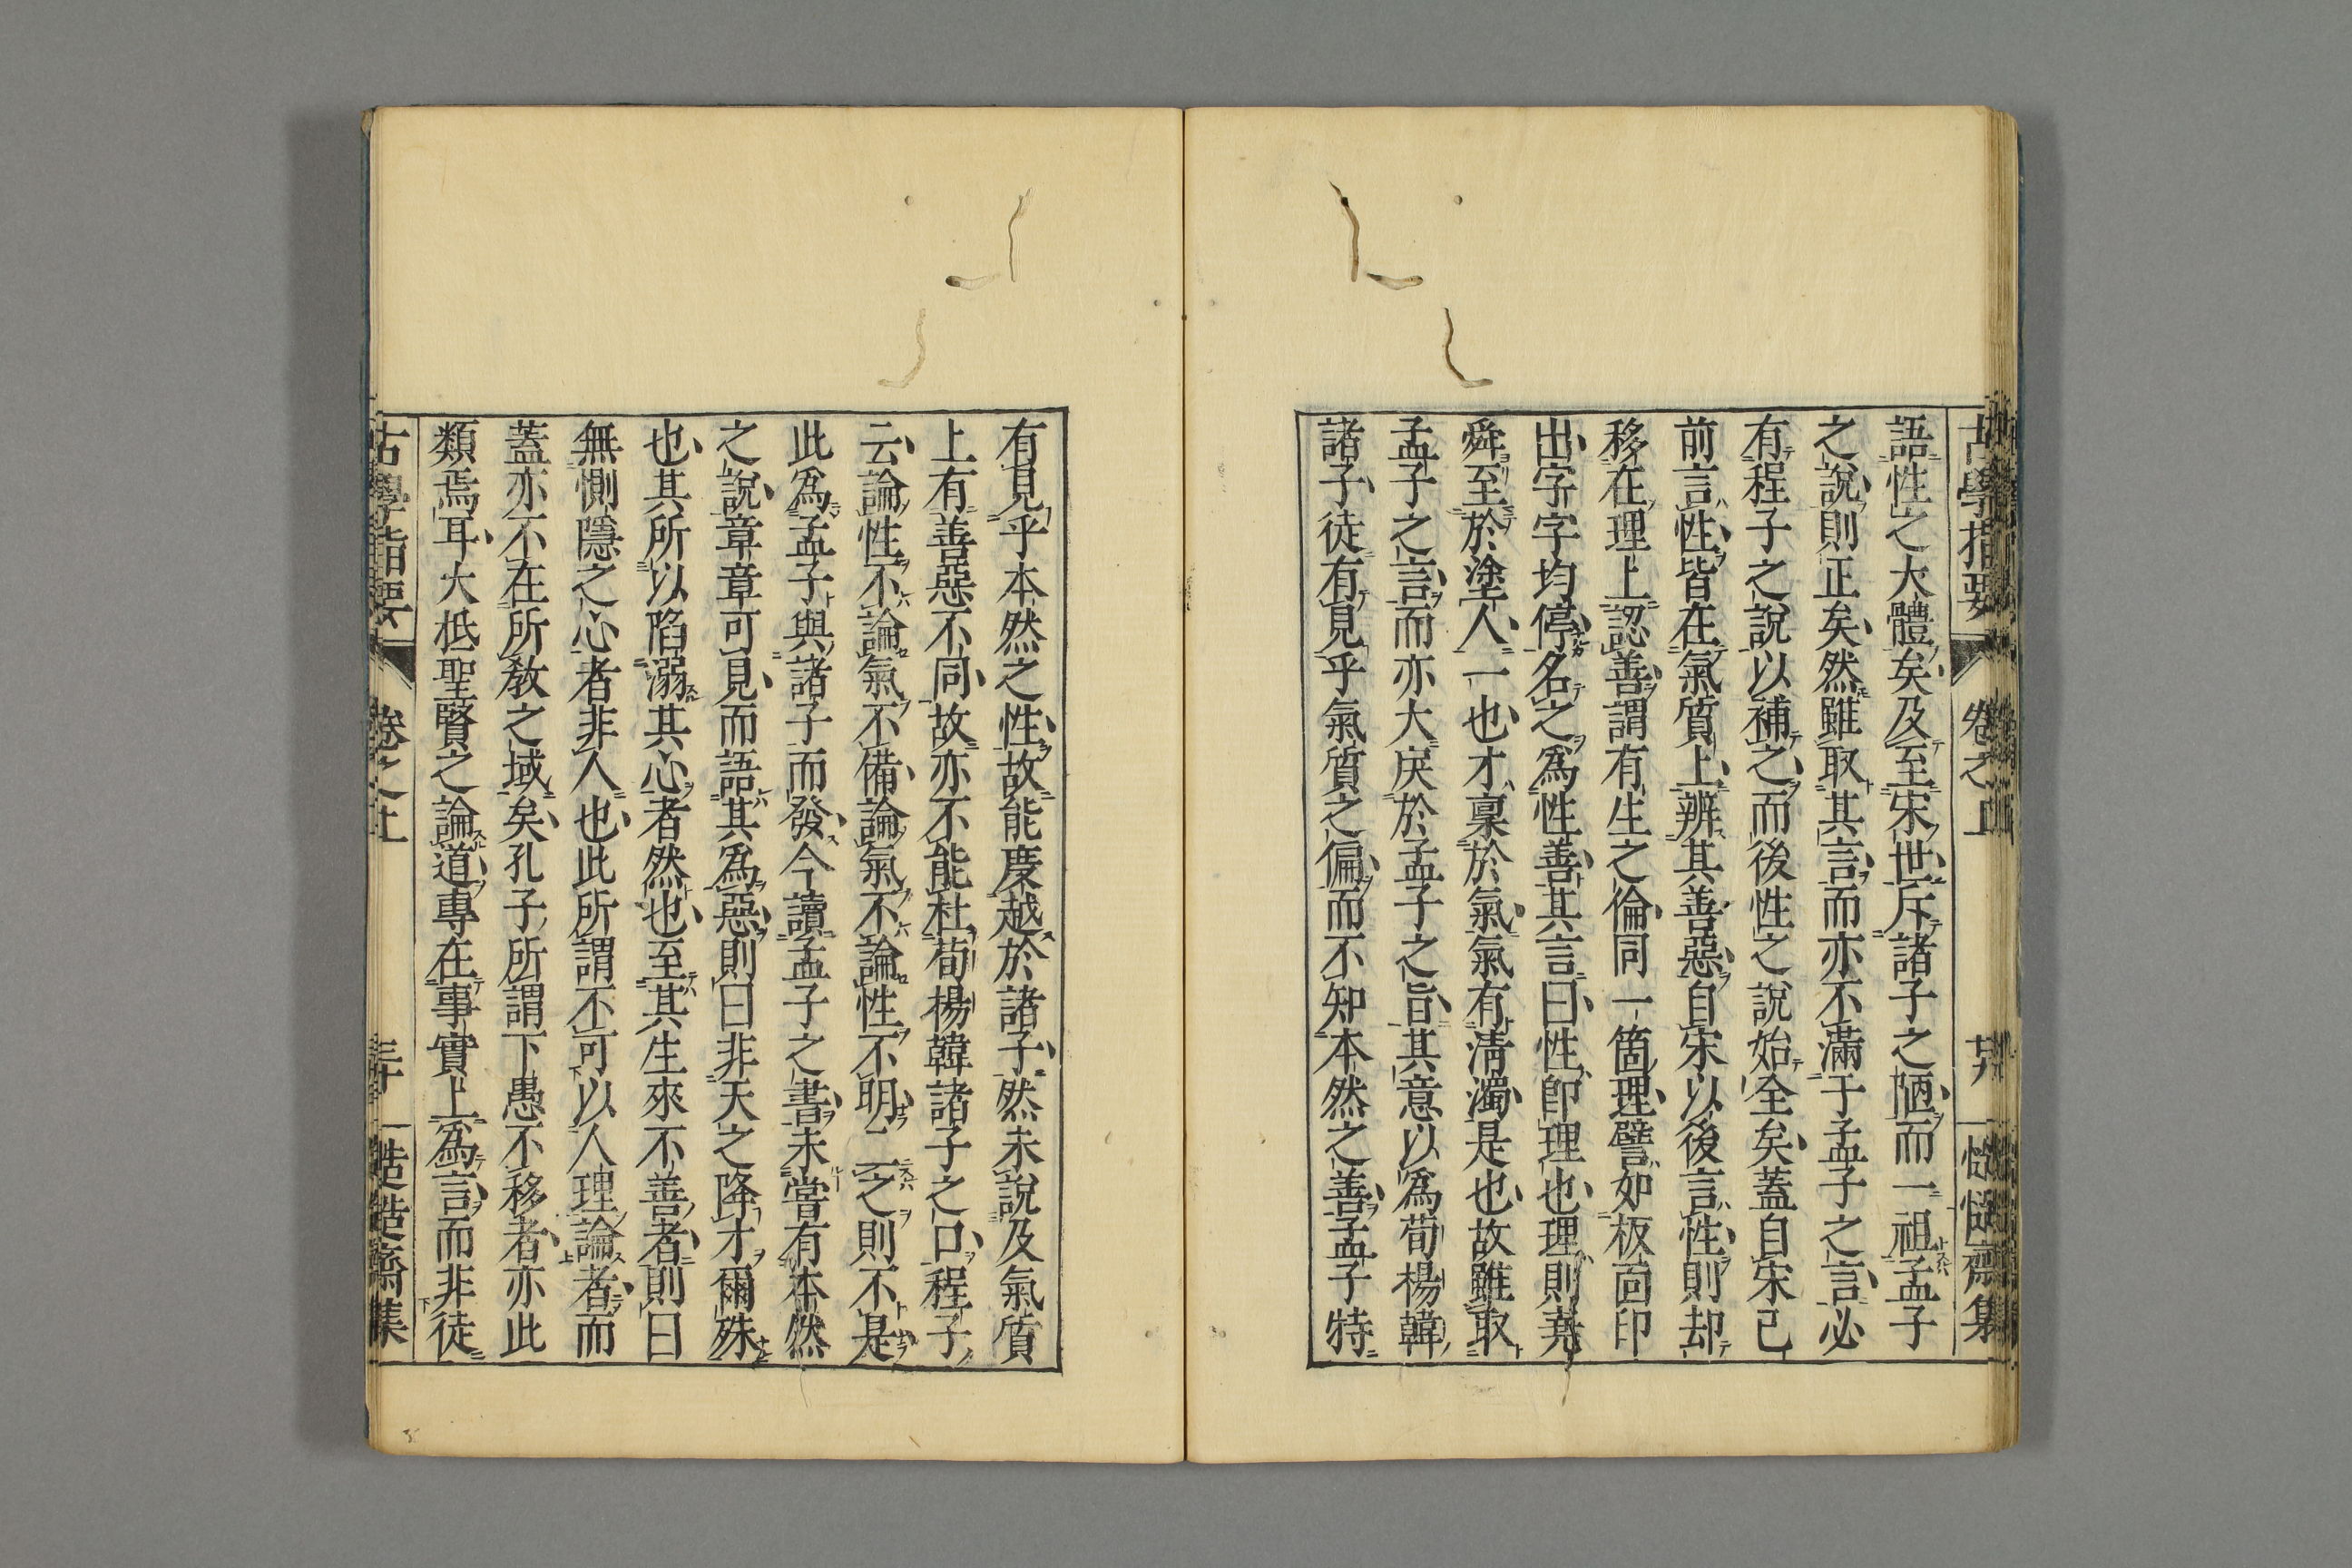 古學指要 卷之上 廿九 慥慥齋集
語性之大體矣及至宋世斥諸子之陋而一祖孟子
之說則正矣然雖取其言而亦不滿于孟子之言必
有程子之說以補之而後性之說始全矣蓋自宋已
前言性皆在氣質上辨其善惡自宋以後言性則却
移在理上認善謂有生之倫同一箇理譬如板面印
出字字均停名之爲性善其言曰性卽理也理則堯
舜至於塗人一也才稟於氣氣有清濁是也故雖取
孟子之言而亦大戾於孟子之旨其意以爲荀楊韓
諸子徒有見乎氣質之偏而不知本然之善孟子特
有見乎本然之性故能度越於諸子然未說及氣質
上有善惡不同故亦不能杜荀楊韓諸子之口程子
云論性不論氣不備論氣不論性不明二之則不是
此爲孟子與諸子而發今讀孟子之書未嘗有本然
之說章章可見而語其爲惡則曰非天之降才爾殊
也其所以陷溺其心者然也至其生來不善者則曰
無惻隱之心者非人也此所謂不可以人理論者而
蓋亦不在所敎之域矣孔子所謂下愚不移者亦此
類焉耳大抵聖賢之論道專在事實上爲言而非徒
古學指要 卷之上 三十 慥慥齋集